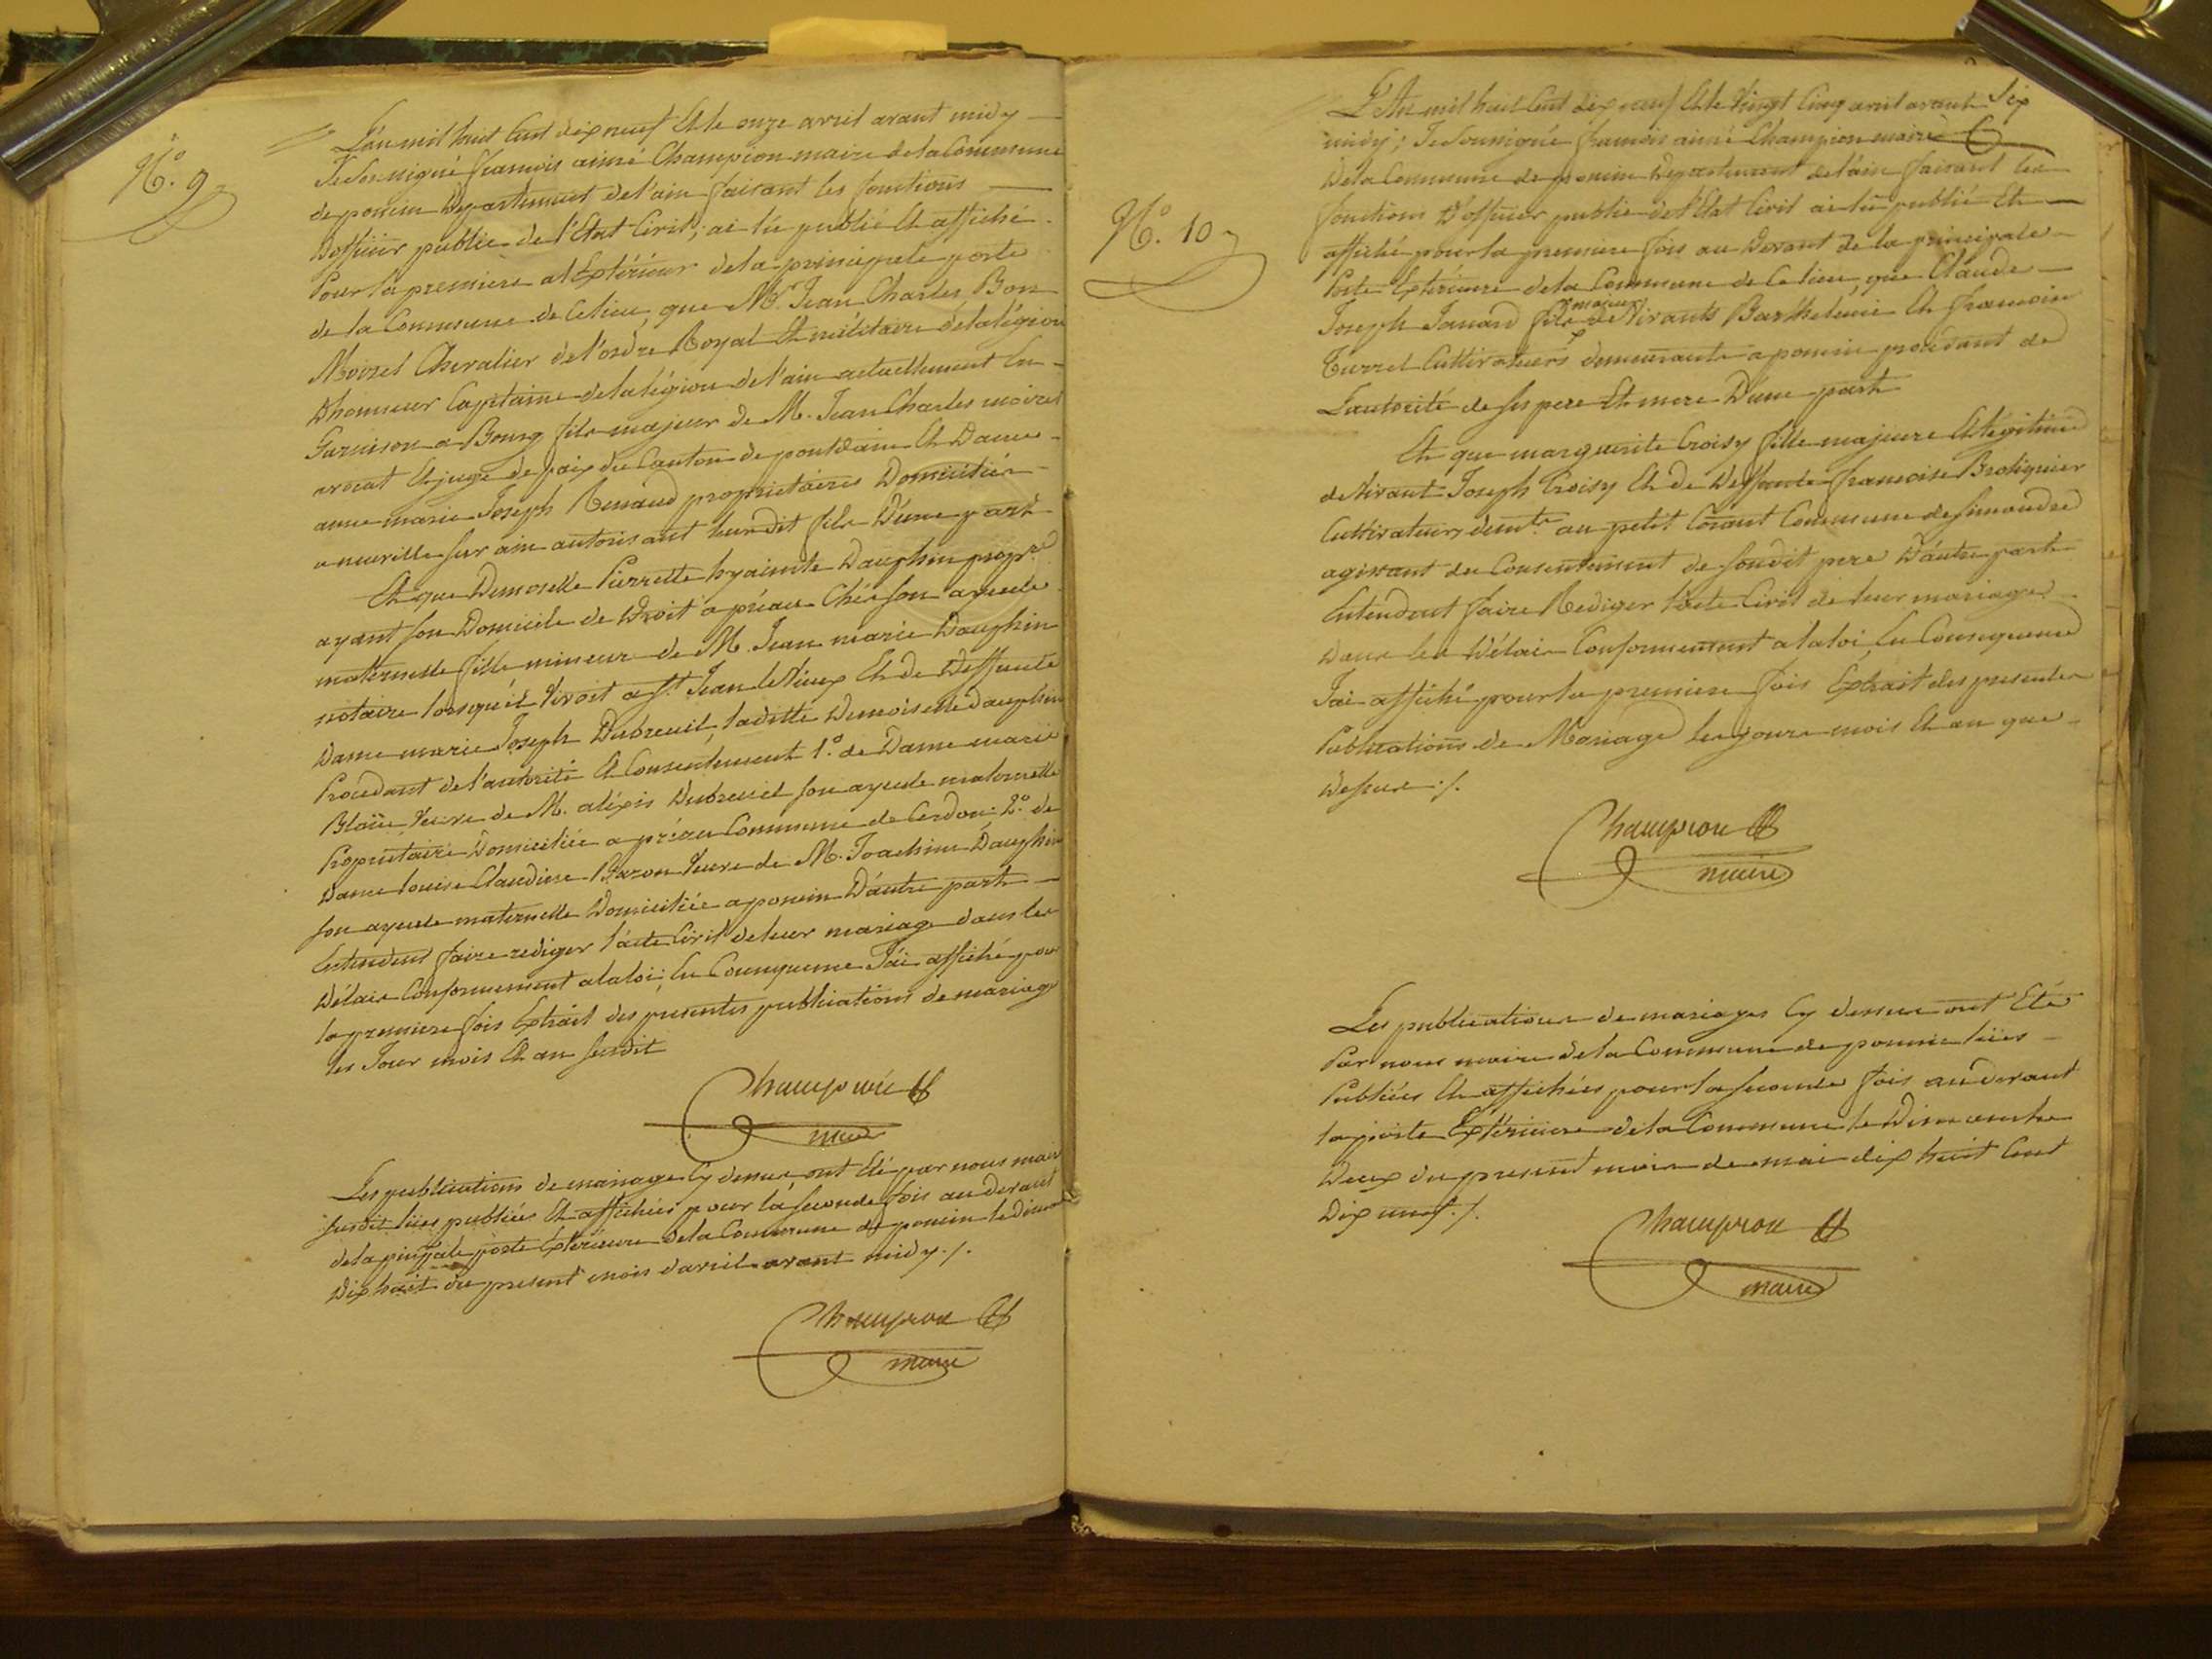 N.° 9
L'an mil huit Cent dix neuf Et le onze avril avant midy
Je Soussigné françois aimé Champion maire de la Commune
de poncin Département de l'ain faisant les fonctions
Dofficier public de l'Etat Civil; ai lu publié Et affiché
Pour la premiere a l'Extérieur de la principale porte
de la Commune de Ce lieu, que Mr. Jean Charles Bon
Moirel Chevalier de l'ordre Royal Et militaire de la légion
Dhonneur Capitaine de la légion de l'ain actuellement En
Garnison a Bourg fils majeur de M. Jean Charles moirel
avocat Et juge de paix du Canton de pontdain Et Dame
anne marie Joseph Renaud propriétaires Domiciliés
a neuville sur ain autorisant leur dit fils D'une part
Et que Demoiselle Pierrette hyacinte Dauphin propre.
ayant son Domicile de Droit a préau Chés son ayeule
maternelle fille mineure de M. Jean marie Dauphin
notaire lorsquil vivoit a St. Jean le Vieux Et de Deffunte
Dame marie Joseph Dubreuil, laditte Demoiselle Dauphin
Procédant de l'autorité Et Consentement 1.° de Dame marie
Veuve de M. aléxis Dubreuil son ayeule maternelle
Propriétaire Domiciliée a préau Commune de Cerdon 2.° de
Dame louise Claudine Veuve de M. Joachim Dauphin
son ayeule maternelle Domiciliée a poncin D'autre part
Entendent faire rediger l'acte Civil de leur mariage dans les
Délais Conformement a la loi; En Consequence J'ai affiché pour
la premiere fois Extrait des présentes publications de mariage
les Jour mois Et an susdit
Champion
maire
Les publications de mariage Cy dessus ont Eté par nous maire
susdit lües publiées Et affichées pour la seconde fois au devant
de la porte Extérieure de la Commune de poncin le
Dix huit du present mois davril avant midy ./.
Champion
maire
Six
N.° 10
L'An mil huit Cent dix neuf Et le Vingt Cinq avril avant
midy; Je Soussigné françois aimé Champion maire
De la Commune de poncin Département de l'ain faisant les
fonctions D'officier public de l'Etat Civil ai lu publié Et
affiché pour la premiere fois au Devant de la principale
Porte Extérieure de la Commune de Ce lieu, que Claude
majeur
Joseph fils de Vivants Barthelémie Et françoise
Cultivateurs demeurants a poncin procédant de
L'autorité de ses pere Et mere D'une part
Et que marguerite Croisy fille majeure Et légitime
de Vivant Joseph Croisy Et de Deffunte françoise
Cultivateurs demts. au petit Corant Commune de simandre
agissant du Consentement de sondit pere D'autre part
Entendent faire Rediger l'acte Civil de leur mariage
Dans les Délais Conformement a la loi En Consequence
J'ai affiché pour la premiere fois Extrait des presentes
Publications de Mariage les jours mois Et an que
Dessus ./.
Champion
maire
Les publications de mariages Cy dessus ont Eté
Par nous maire de la Commune de poncin lües
Publiées Et affichées pour la seconde fois au devant
la porte Extérieure de la Commune le Dimanche
Deux du present mois de mai dix huit Cent
Dix neuf ./.
Champion
maire